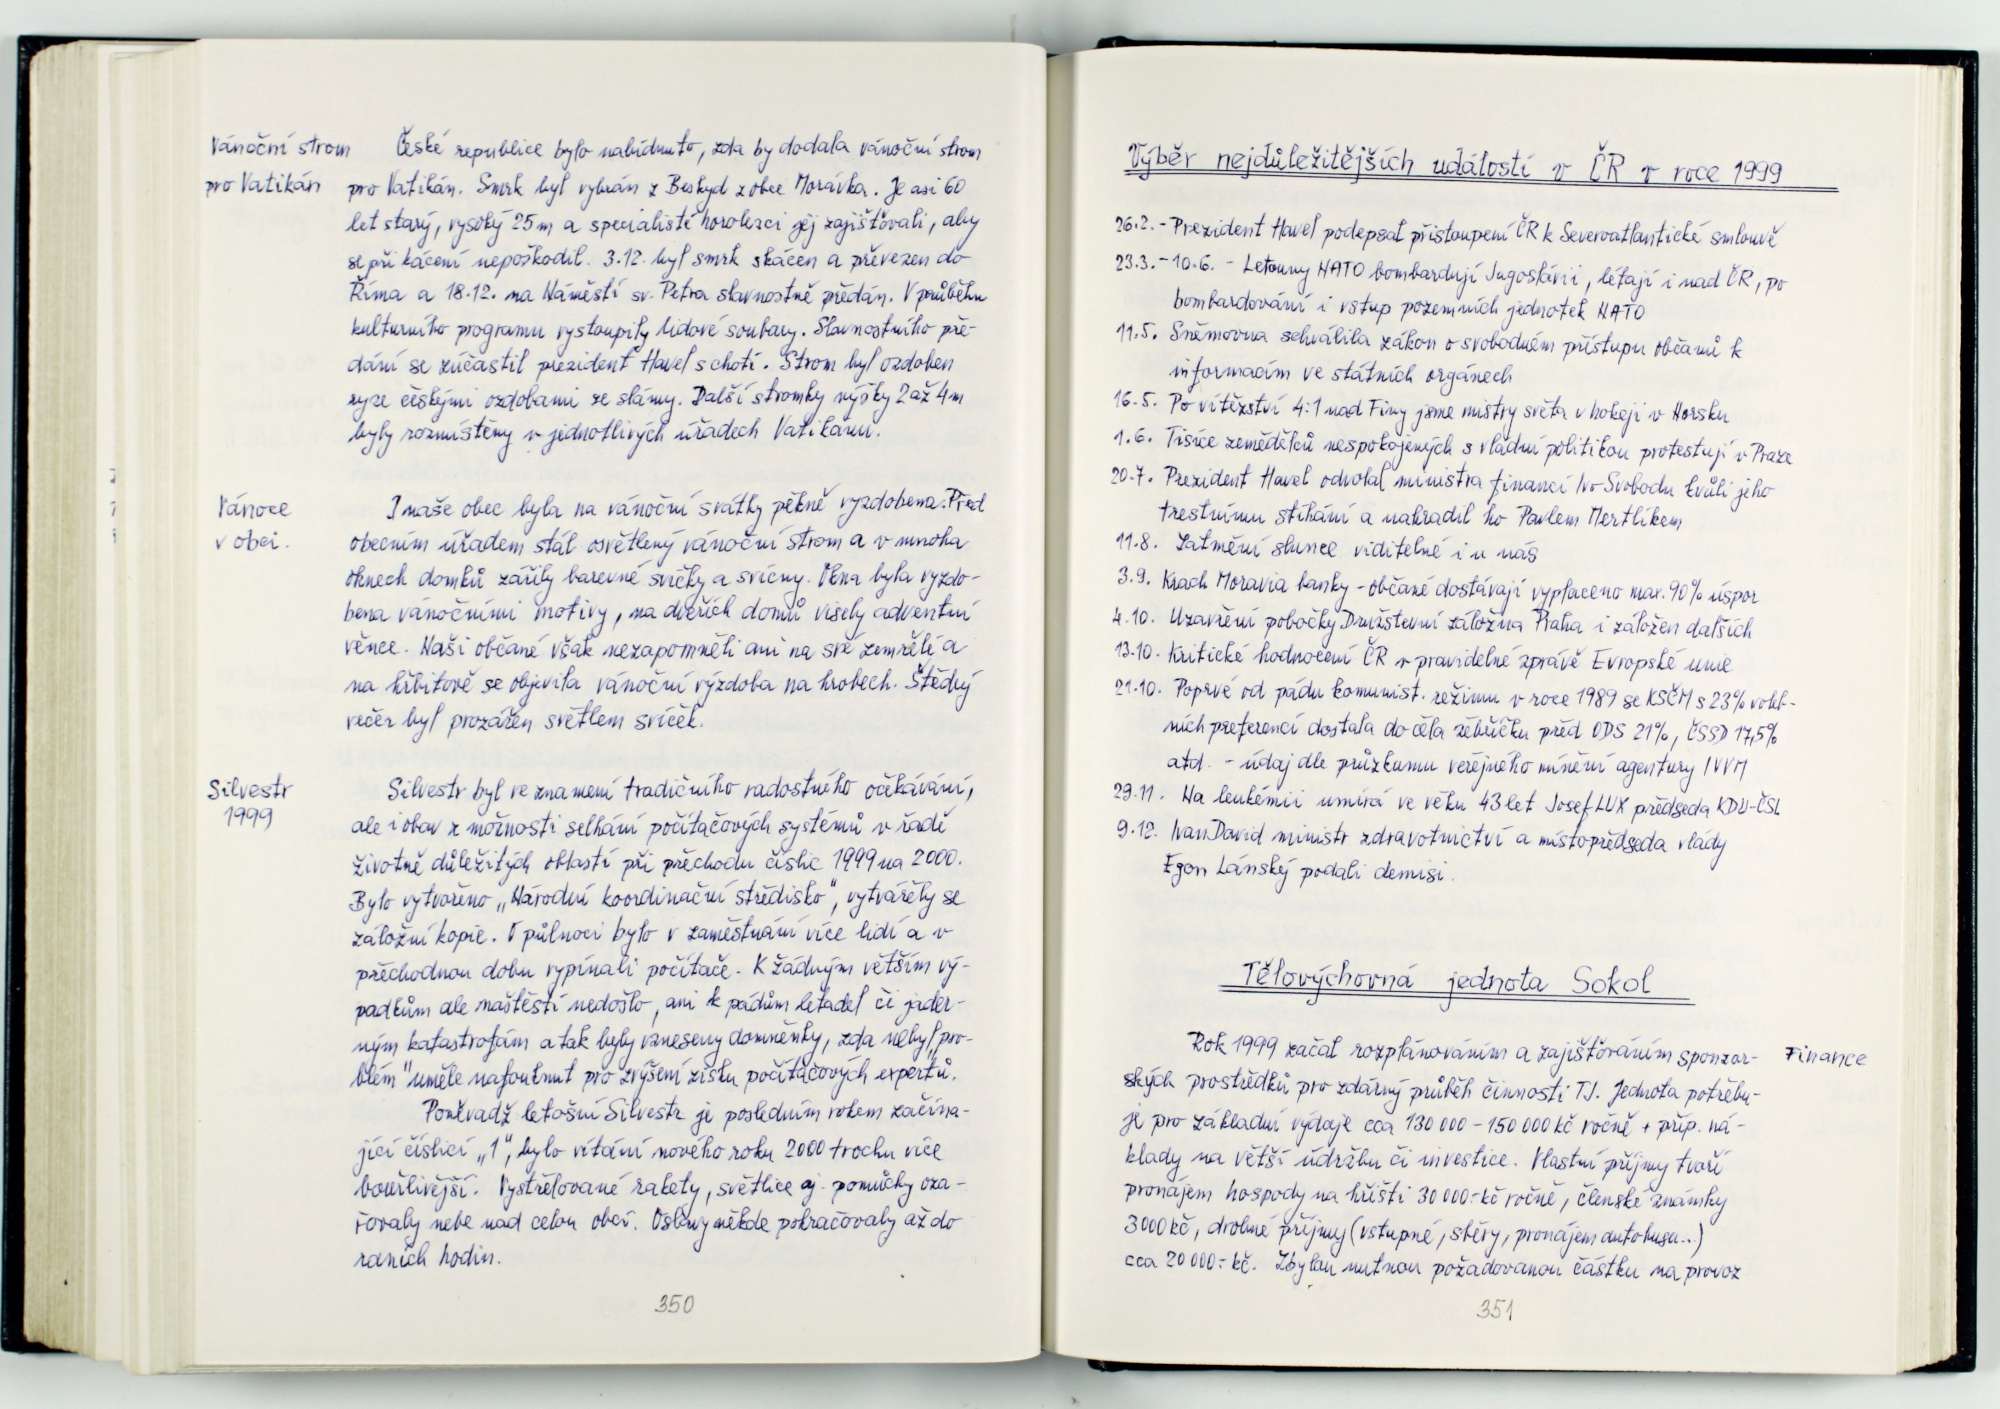 Vánoční strom
pro Vatikán
České republice bylo nabídnuto, zda by dodala vánoční strom
pro Vatikán. Smrk byl vybrán z Beskyd z obce Morávka. Je asi 60
let starý, vysoký 25 m a specialisté horolezci jej zajišťovali, aby
se při kácení nepoškodil. 3.12. byl smrk skácen a převezen do
Říma a 18.12. na Náměstí sv. Petra slavnostně předán. V průběhu
kulturního programu vystoupily lidové soubory. Slavnostního pře-
dání se zúčastil prezident Havel s chotí. Strom byl ozdoben
ryze českými ozdobami ze slámy. Další stromky výšky 2 až 4 m
byly rozmístěny v jednotlivých úřadech Vatikánu.
Vánoce
v obci.
I naše obec byla na vánoční svátky pěkně vyzdobena. Před
obecním úřadem stál osvětlený vánoční strom a v mnoha
oknech domků zářily barevné svíčky a svícny. Okna byla vyzdo-
bena vánočními motivy, na dveřích domů visely adventní
věnce. Naši občané však nezapomněli ani na své zemřelé a
na hřbitově se objevila vánoční výzdoba na hrobech. Štědrý
večer byl prozářen světlem svíček.
Silvestr
1999
Silvestr byl ve znamení tradičního radostného očekávání,
ale i obav z možnosti selhání počítačových systémů v řadě
životně důležitých oblastí při přechodu číslic 1999 na 2000.
Bylo vytvořeno „Národní koordinační středisko“, vytvářely se
záložní kopie. O půlnoci bylo v zaměstnání více lidí a v
přechodnou dobu vypínali počítače. K žádným větším vý-
padkům ale naštěstí nedošlo, ani k pádům letadel či jader-
ným katastrofám a tak byly vzneseny domněnky, zda nebyl „pro-
blém“ uměle nafouknut pro zvýšení zisku počítačových expertů.
Poněvadž letošní Silvestr je posledním rokem začína-
jící číslicí „1“, bylo vítání nového roku 2000 trochu více
bouřlivější. Vystřelované rakety, světlice aj. pomůcky oza-
řovaly nebe nad celou obcí. Oslavy někde pokračovaly až do
raních hodin.
350
Výběr nejdůležitějších událostí v ČR v roce 1999
26.2. - Prezident Havel podepsal přistoupení ČR k Severoatlantické smlouvě
23.3. - 10.6. - Letouny NATO bombardují Jugoslávii, létají i nad ČR, po
bombardování i vstup pozemních jednotek NATO
11.5. Sněmovna schválila zákon o svobodném přístupu občanů k
informacím ve státních orgánech
16.5. Po vítězství 4:1 nad Finy jsme mistry světa v hokeji v Norsku
1.6. Tisíce zemědělců nespokojených s vládní politikou protestují v Praze
20.7. Prezident Havel odvolal ministra financí Ivo Svobodu kvůli jeho
trestnímu stíhání a nahradil ho Pavlem Mertlíkem
11.8. Zatmění slunce viditelné i u nás
3.9. Krach Moravia banky - občané dostávají vyplaceno max. 90% úspor
4.10. Uzavření pobočky Družstevní záložna Praha i záložen dalších
13.10. Kritické hodnocení ČR v pravidelné zprávě Evropské unie
21.10. Poprvé od pádu komunist. režimu v roce 1989 se KSČM s 23% voleb-
ních preferencí dostala do čela žebříčku před ODS 21%, ČSSD 17,5%
atd. - údaj dle průzkumu veřejného mínění agentury IVVM
29.11. Na leukémii umírá ve věku 43 let Josef LUX předseda KDU-ČSL
9.12. Ivan David ministr zdravotnictví a místopředseda vlády
Egon Lánský podali demisi.
Tělovýchovná jednota Sokol
Rok 1999 začal rozplánováním a zajišťováním sponzor-
ských prostředků pro zdárný průběh činnosti TJ. Jednota potřebu-
je pro základní výdaje cca 130 000 - 150 000 kč ročně + příp. ná-
klady na větší údržbu či investice. Vlastní příjmy tvoří
pronájem hospody na hřišti 30 000.- kč ročně, členské známky
3000 kč, drobné příjmy (vstupné, sběry, pronájem autobusu...)
cca 20 000.- kč. Zbylou nutnou požadovanou částku na provoz
Finance
351